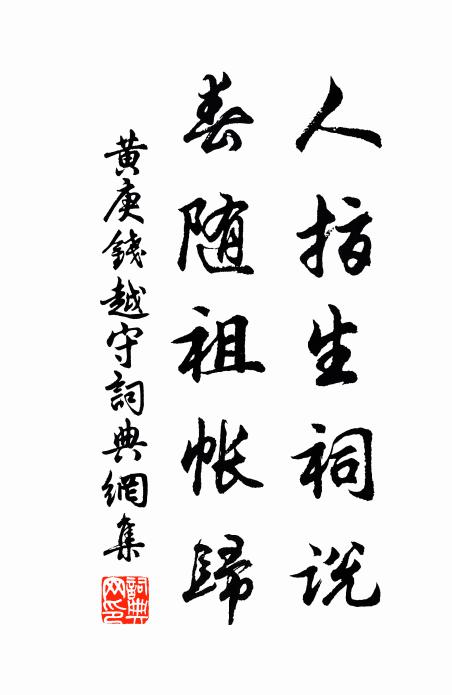 人指生祠説
春随祖帳歸
黄庚錢越守詞典網集
詞典網印